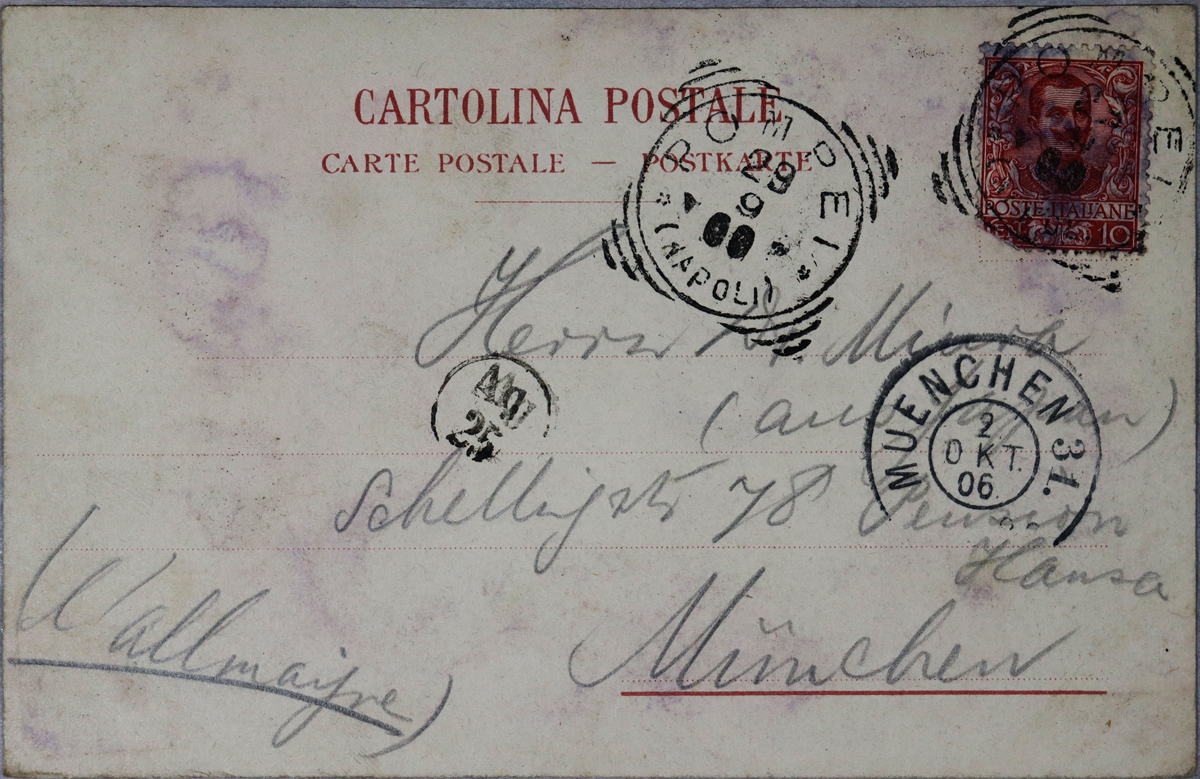 CARTOLINA POSTALE
CARTE POSTALE — POSTKARTE
POMPEI
29
9
(NAPOLI)
POMPEI
POSTE ITALIANE
10
Herrn Dr. Miura
(aus Japan)
Abg
25
MUENCHEN 31.
2
OKT.
06
Schellingstr 78 Pension
Hansa
München
(Wallmaijre)